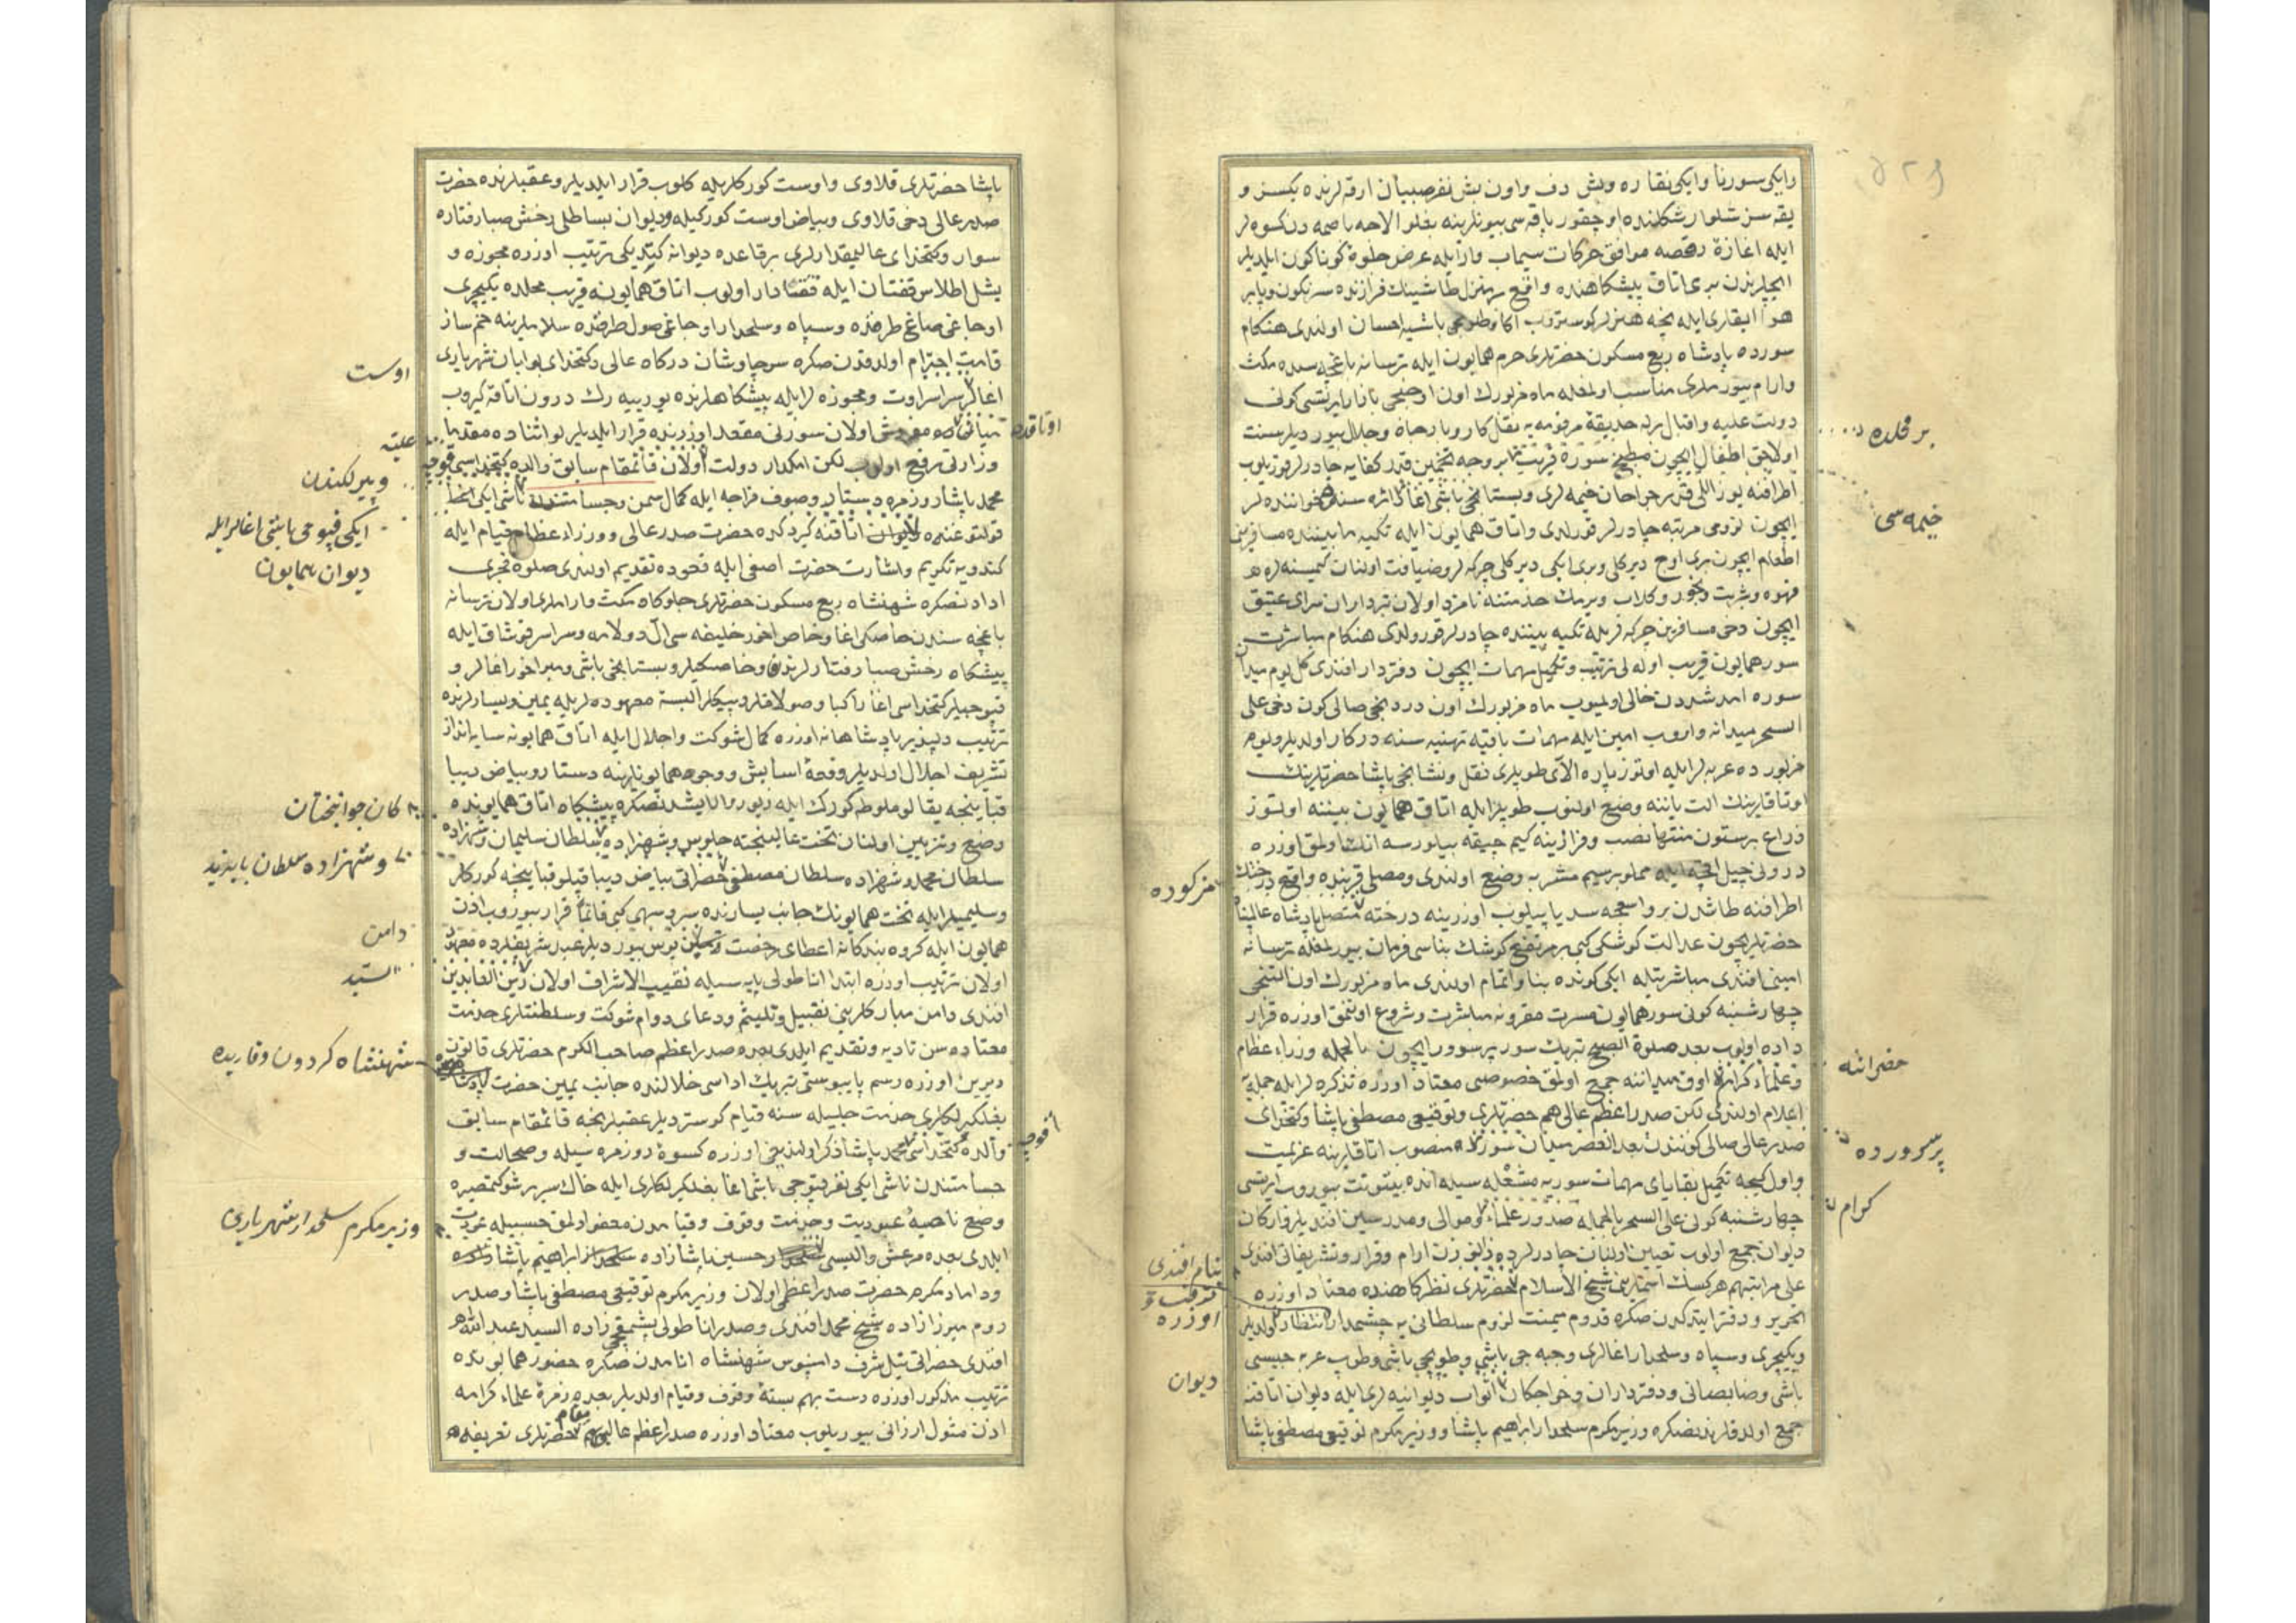 وایکی سورنا وایکی نقاره وبش دف واون بش نفر صبیان ارقه لرنده یکسز و
یقه سز شلوار شکلنده اوچقور یاقه سی بیونلرینه بغلو الاجه باصمه دن کسوه لر
ایله اغازهٔ رقصه موافق حرکات سیماب وار ایله عرض جلوهٔ کوناکون ایلدیلر
ایچلرندن بری اتاق پیشکاهنده واقع
هوا
سورده پادشاه ربع مسکون حضرتلری حرم همایون ایله ترسانه باغچه سنده مکث
وارام بیورملری مناسب اولمغله ماه مزبورك اون اوچنجی بازار ایرتسی کونی
دولت علیه واقبال ایله حدیقهٔ مرقومه یه نقل کاروبار جاه وجلال بیوردیلر سنت
اولاجق اطفال ایچون مطبخ سوره قریب بر وجه تخمین قدر کفایه چادرلر قوریلوب
اطرافنه یوز اللی قدر جراحان خیمه لری وبستانجی باشی اغا دائره سنده خواننده لر
ایچون لزومی مرتبه چادرلر قورلدی واتاق همایون ایله تکیه مابیننده مسافرین
اطعام ایچون بری اوچ دیرکلی وبری ایکی دیرکلی چرکه لر وضیافت اولنان کمسنه لره
قهوه وشربت وبخور وکلاب ویرمك خدمتنه نامزد اولان تبرداران سرای عتیق
ایچون دخی مسافرین چرکه لریله تکیه بیننده چادرلر قورولدی هنکام مباشرت
سور همایون قریب اولمغله ترتیب وتکمیل مهمات ایچون دفتردار افندی کل یوم میدان
سوره امد شددن خالی اولمیوب ماه مزبورك اون دردنجی صالی کون دخی علی
السحر میدانه واروب امین ایله مهمات باقیه تهیه سنه درکار اولدیلر ویوم
مزبورده عربه لر ایله اوتوز پاره الای طوپلری نقل ونشانجی پاشا حضرتلرینك
اوتاقلرینك الت یاننه وضع اولنوب طوپلر ایله اتاق همایون بیننه اوتوز
ذراع بر ستون منتها نصب وفرازینه
درونی چیل اقچه ایله مملو بر سیم مشربه وضع اولندی ومصلی قربنده واقع درختك
اطرافنه طاشدن بر واسعجه سد یاپیلوب اوزرینه درخته متصل پادشاه عالمپناه
حضرتلریچون عدالت کوشکی کبی بر مرتفع کوشك بناسی فرمان بیورلمغله ترسانه
امینی افندی مباشرتیله ایکی کونده بنا واتمام اولندی ماه مزبورك اون التنجی
چهارشنبه کونی سور همایون مسرت مقرونه مباشرت وشروع اولنمق اوزره قرار
داده اولوب بعد صلوة الصبح تبریك سور پرسوور ایچون بالجمله وزراء عظام
وعلماء کرام اوق میداننه جمع اولمق خصوصی معتاد اوزره تذکره لر ایله جمله یه
اعلام اولندی لکن صدراعظم عالی همم حضرتلری وتوقیعی مصطفی پاشا وکتخدای
صدر عالی صالی کونندن بعد العصر میدان سورده منصوب اتاقلرینه عزیمت
واول کیجه تکمیل بقایای مهمات سوریه مشغله سیله انده بیتوتت بیوروب ایرتسی
چهارشنبه کونی علی السحر بالجمله صدور علماء وموالی ومدرسین افندیلر وارکان
دیوان جمع اولوب تعیین اولنان چادرلرده زانوزن ارام وقرار وتشریفاتی افندی
علی مراتبهم هرکسك اسملرینی شیخ الاسلام حضرتلری نظرکاهنده معتاد اوزره
تحریر ودفتر ایتدکدن صکره قدوم میمنت لزوم سلطانی یه چشمدار انتظار اولدیلر
ویکیچری وسپاه وسلحدار اغالری وجبه جی باشی وطوپچی باشی وطوپ عربه جیسی
باشی وضابطانی ودفترداران وخواجکان اثواب دیوانیه لری ایله دیوان اتاقنه
جمع اولدقلرندنصکره وزیر مکرم سلحدار ابراهیم پاشا ووزیر مکرم توقیعی مصطفی پاشا
بر محلده
خیمه سی
مزکوره
حضراتنه
پرسرورده
کرام
بتام افندی
اوزره
دیوان
پاشا حضرتلری قلاوی واوست کورکلریله کلوب قرار ایلدیلر وعقبلرنده حضرت
صدر عالی دخی قلاوی وبیاض اوست کورکیله ودیوان بساطلی رخش صبا رفتاره
سوار وکتخدای عالیمقدارلری بر قاعده دیوانه کیتدیکی ترتیب اوزره مجوزه و
یشل اطلاس قفتان ایله قفتاندار اولوب اتاق همایونه قریب محلده یکیچری
اوجاغی صاغ طرفده وسپاه وسلحدار اوجاغی صول طرفده سلاملرینه خم ساز
قامت احترام اولدقدن صکره سرچاوشان درکاه عالی وکتخدای بوابان شهریاری
اغالر سراسر اوست ومجوزه لر ایله پیشکاهلرنده یوریه رك درون اتاقه کیروب
مفروش اولان سورنی مقعد اوزرنده قرار ایلدیلر لو اثناده مقدما
وزارتی مرفوع اولوب لکن امکدار دولت اولان قائمقام سابق والده کتخداسی
محمد پاشا روزمره دستار وصوف فراجه ایله کمال سمن وجسامتندن ناشی ایکی اغا
قولتوغنده دیوان اتاقنه کیردکده حضرت صدر عالی ووزراء عظام قیام ایله
کندویه تکریم واشارت حضرت اصفی ایله قعوده تقدیم اولندی صلوة فجری
ادادنصکره شهنشاه ربع مسکون حضرتلری جلوکاه مکث وارامدری اولان ترسانه
باغچه سندن خاصکی اغا وخاص اخور خلیفه سی ال دولامه وسراسر قوشاق ایله
پیشکاه رخش صبا رفتارلرنده وخاصکیلر وبستانجی باشی ومیراخور اغالر و
قپوجیلر کتخداسی اغا راکبا وصولاقلر وپیکلر البسهٔ معهوده لریله یمین ویسارلرنده
ترتیب دلپذیر پادشاهانه اوزره کمال شوکت واجلال ایله اتاق همایونه سایه انداز
تشریف اجلال اولدیلر وقفهٔ اسایش ووجوه همایونلرینه دستار وبیاض دیبا
قبانیچه یقالو ملوطه کورك ایله
وضع وتزیین اولنان تخت عالیبخته جلوس وشهزاده سلطان سلیمان وشهزاده
سلطان محمد وشهزاده سلطان مصطفی حضراتی بیاض دیبا قپلو قبانیچه کورکلر
وسلیمیلر ایله تخت همایونك جانب یسارنده سرو سهی کبی قائما قرار بیوروب اذن
همایون ایله کروه بندکانه اعطای رخصت بوس بیوردیلر عید شریفلرده معهود
اولان ترتیب اوزره ابتدا اناطولی پایه سیله نقیب الاشراف اولان زین العابدین
افندی دامن مبارکلرینی تقبیل وتلثیم ودعای دوام شوکت وسلطنتلری خدمت
معتاده سن تادیه وتقدیم ایلدی بعده صدراعظم صاحب الکرم حضرتلری قانون
دیرین اوزره رسم پایبوسی تبریك اداسی خلالنده جانب یمین حضرت
بغلکیرلکلری خدمت جلیله سنه قیام کوستردیلر عقبلرینجه قائمقام سابق
والده کتخداسی محمد پاشا ذکر اولندیغی اوزره کسوهٔ روزمره سیله وضخامت و
جسامتندن ناشی ایکی نفر قپوجی باشی اغا بغلکیرلکلری ایله خاك سریر شوکتمصیره
وضع ناصیهٔ عبودیت وخدمت وقوف وقیامدن معفو اولمق حسبیله عودت
ایلدی بعده مرعش والیسی حسین پاشازاده ابراهیم پاشا
وداماد مکرم حضرت صدراعظمی اولان وزیر مکرم توقیعی مصطفی پاشا وصدر
روم میرزازاده شیخ محمد افندی وصدر اناطولی پشمقجی زاده السید عبدالله
افندی حضراتی نیل شرف دامنبوس شهنشاه انامدن صکره حضور همایونده
ترتیب مذکور اوزره دست بهم بسته وقوف وقیام اولدیلر بعده زمرهٔ علماء کرامه
اذن مثول ارزانی بیوریلوب معتاد اوزره صدراعظم عالیمقام حضرتلری تعریفنده
اوتاقده
اوست
علیه
وپیرلکندن
ایکی قپوجی باشی اغالر ایله
دیوان همایون
کان جوانبختان
وشهزاده سلطان بایزید
دامن
السید
شهنشاه کردون وقاریده
وزیر مکرم سلحدار شهریاری